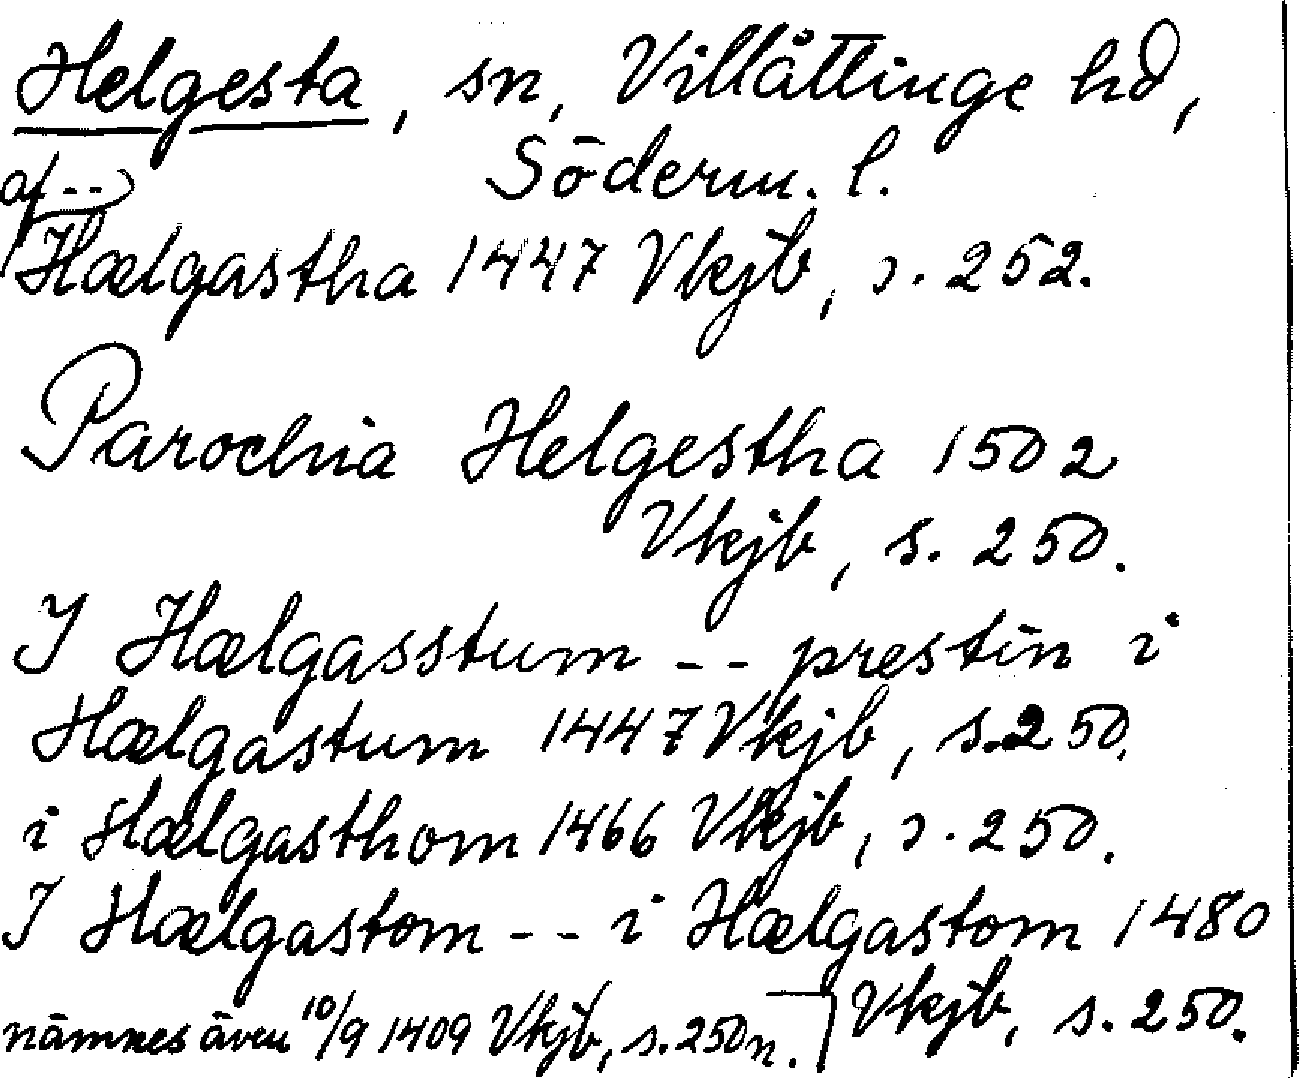 Helgesta, sn, Villåttinge hd,
Söderm. l.
af --
Hælgastha 1447 Vkjb, s. 252.
Parochia Helgestha 1502
Vkjb, s. 250.
I Hælgasstum -- prestin i
Hælgastum 1447 Vkjb, s. 250.
i Hælgasthom 1466 Vkjb, s. 250.
I Hælgastom -- i Hælgastom 1480
Vkjb, s. 250.
nämnes även 10/9 1409 Vkjb, s. 250 n.